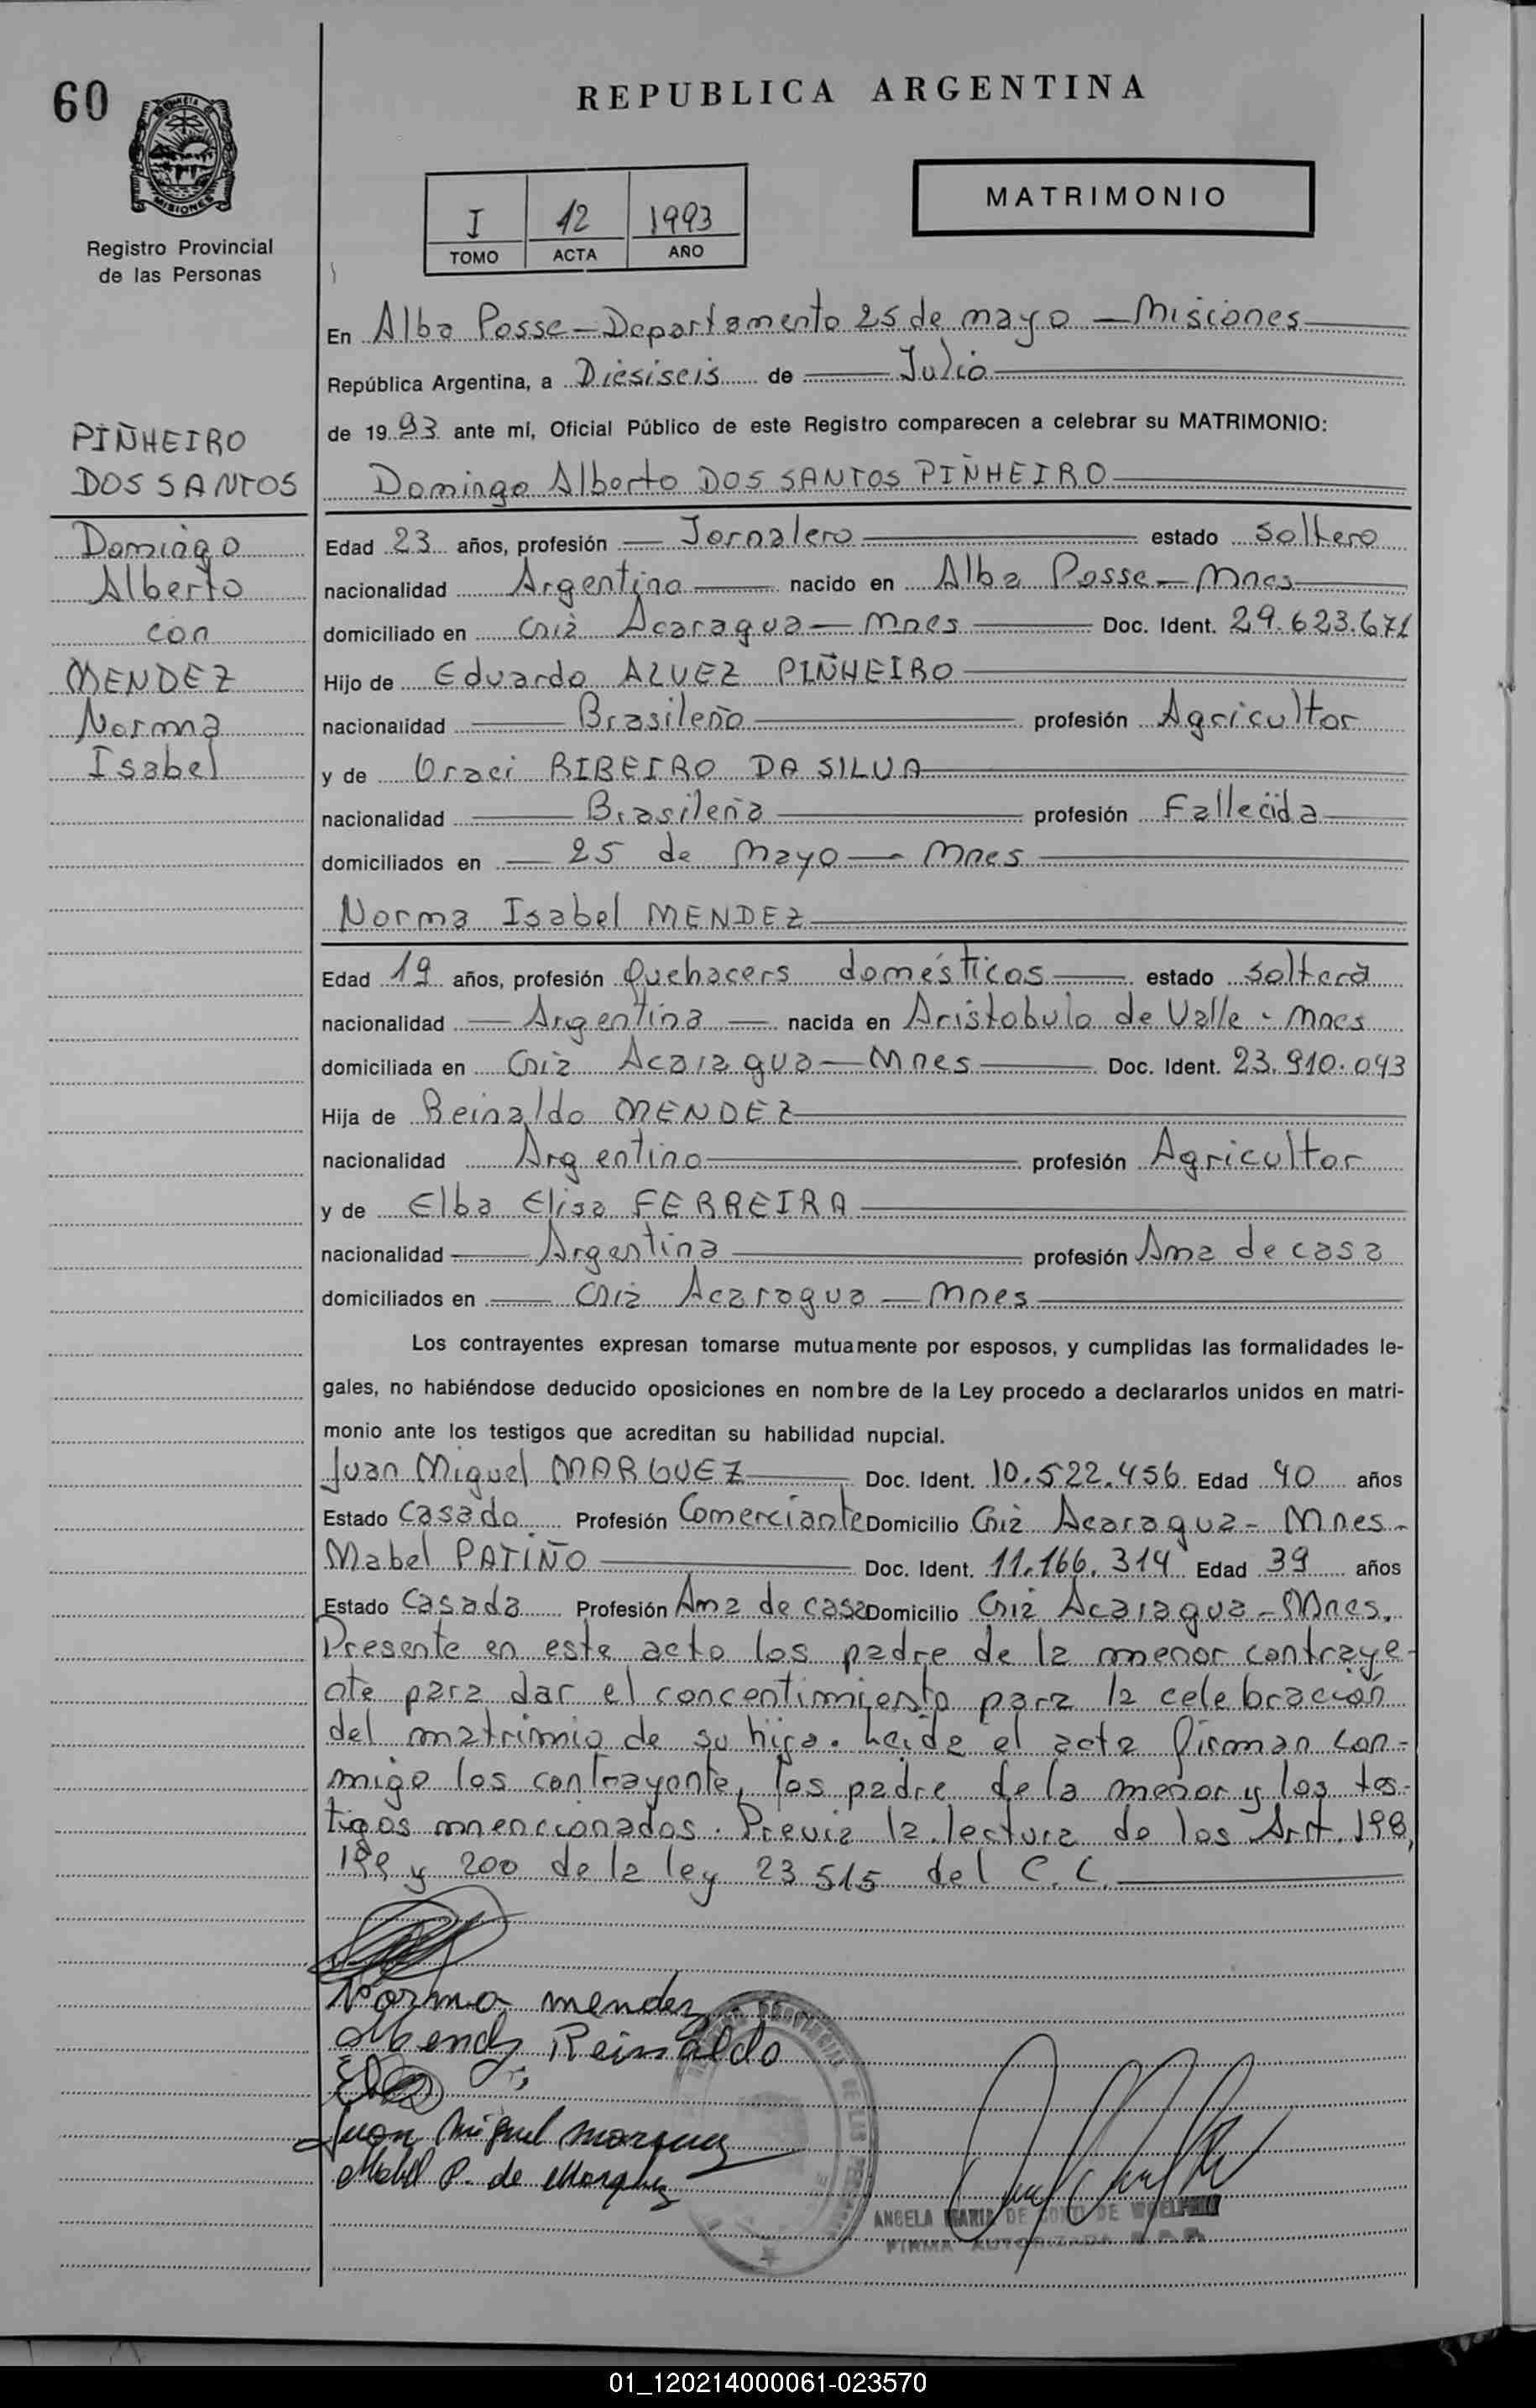 60
REPUBLICA ARGENTINA
MISIONES
Registro Provincial
de las Personas
I 12 1993
TOMO ACTA AÑO
MATRIMONIO
En Alba Posse - Departamento 25 de mayo - Misiones
República Argentina, a Diesiseis de Julio
de 1993 ante mí, Oficial Público de este Registro comparecen a celebrar su MATRIMONIO:
PIÑHEIRO
DOS SANTOS
Domingo
Alberto
con
MENDEZ
Norma
Isabel
Domingo Alberto DOS SANTOS PIÑHEIRO
Edad 23 años, profesión Jornalero estado soltero
nacionalidad Argentino nacido en Alba Posse - Mnes
domiciliado en Cnia Acaragua - Mnes Doc. Ident. 29.623.671
Hijo de Eduardo ALVEZ PIÑHEIRO
nacionalidad Brasileño profesión Agricultor
y de Oraci RIBEIRO DA SILVA
nacionalidad Brasileña profesión Fallecida
domiciliados en 25 de Mayo - Mnes
Norma Isabel MENDEZ
Edad 19 años, profesión Quehacers domésticos estado soltera
nacionalidad Argentina nacida en Aristobulo de Valle - Mnes
domiciliada en Cnia Acaragua - Mnes Doc. Ident. 23.910.043
Hija de Reinaldo MENDEZ
nacionalidad Argentino profesión Agricultor
y de Elba Elisa FERREIRA
nacionalidad Argentina profesión Ama de casa
domiciliados en Cnia Acaragua - Mnes
Los contrayentes expresan tomarse mutuamente por esposos, y cumplidas las formalidades le-
gales, no habiéndose deducido oposiciones en nombre de la Ley procedo a declararlos unidos en matri-
monio ante los testigos que acreditan su habilidad nupcial.
Juan Miguel MARQUEZ Doc. Ident. 10.522.456 Edad 40 años
Estado Casado Profesión Comerciante Domicilio Cnia Acaragua - Mnes -
Mabel PATIÑO Doc. Ident. 11.166.314 Edad 39 años
Estado Casada Profesión Ama de casa Domicilio Cnia Acaragua - Mnes.
Presente en este acto los padre de la menor contraye-
nte para dar el concentimiento para la celebración
del matrimio de su hija. Leida el acta firman con-
migo los contrayente, los padre de la menor y los tes-
tigos mencionados. Previa la lectura de los Art. 198,
199 y 200 de la ley 23515 del C.C.
Norma mendez
Mendez Reinaldo
Juan Miguel Marquez
Mabel P. de Marquez
ANGELA MARIA DE CONTI DE
FIRMA AUTORIZADA
01_120214000061-023570